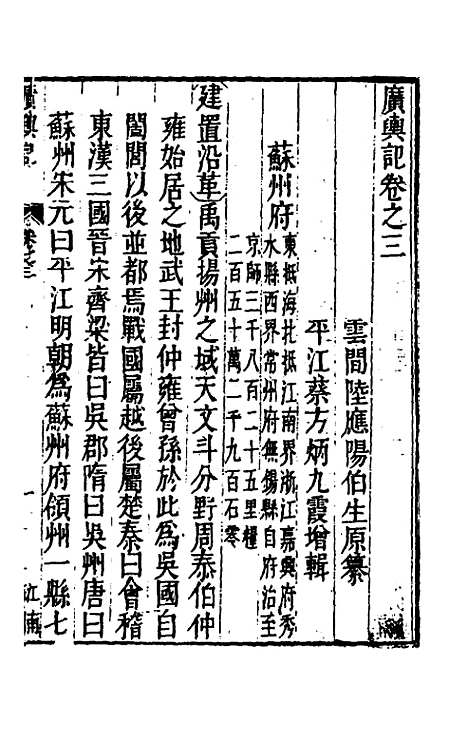 廣輿記卷之三
雲間陸應陽伯生原纂
平江蔡方炳九霞增輯
蘇州府
東抵海北抵江南界浙江嘉興府秀
水縣西界常州府無錫縣自府治至
京師三千八百二十五里糧
二百五十萬二千九百石零
建置沿革禹貢揚州之域天文斗分野周泰伯仲
雍始居之地武王封仲雍曾孫於此為吳國自
闔閭以後並都焉戰國屬越後屬楚秦曰會稽
東漢三國晉宋齊梁皆曰吳郡隋曰吳州唐曰
蘇州宋元曰平江明朝為蘇州府領州一縣七
廣輿記
卷之三
一
江南